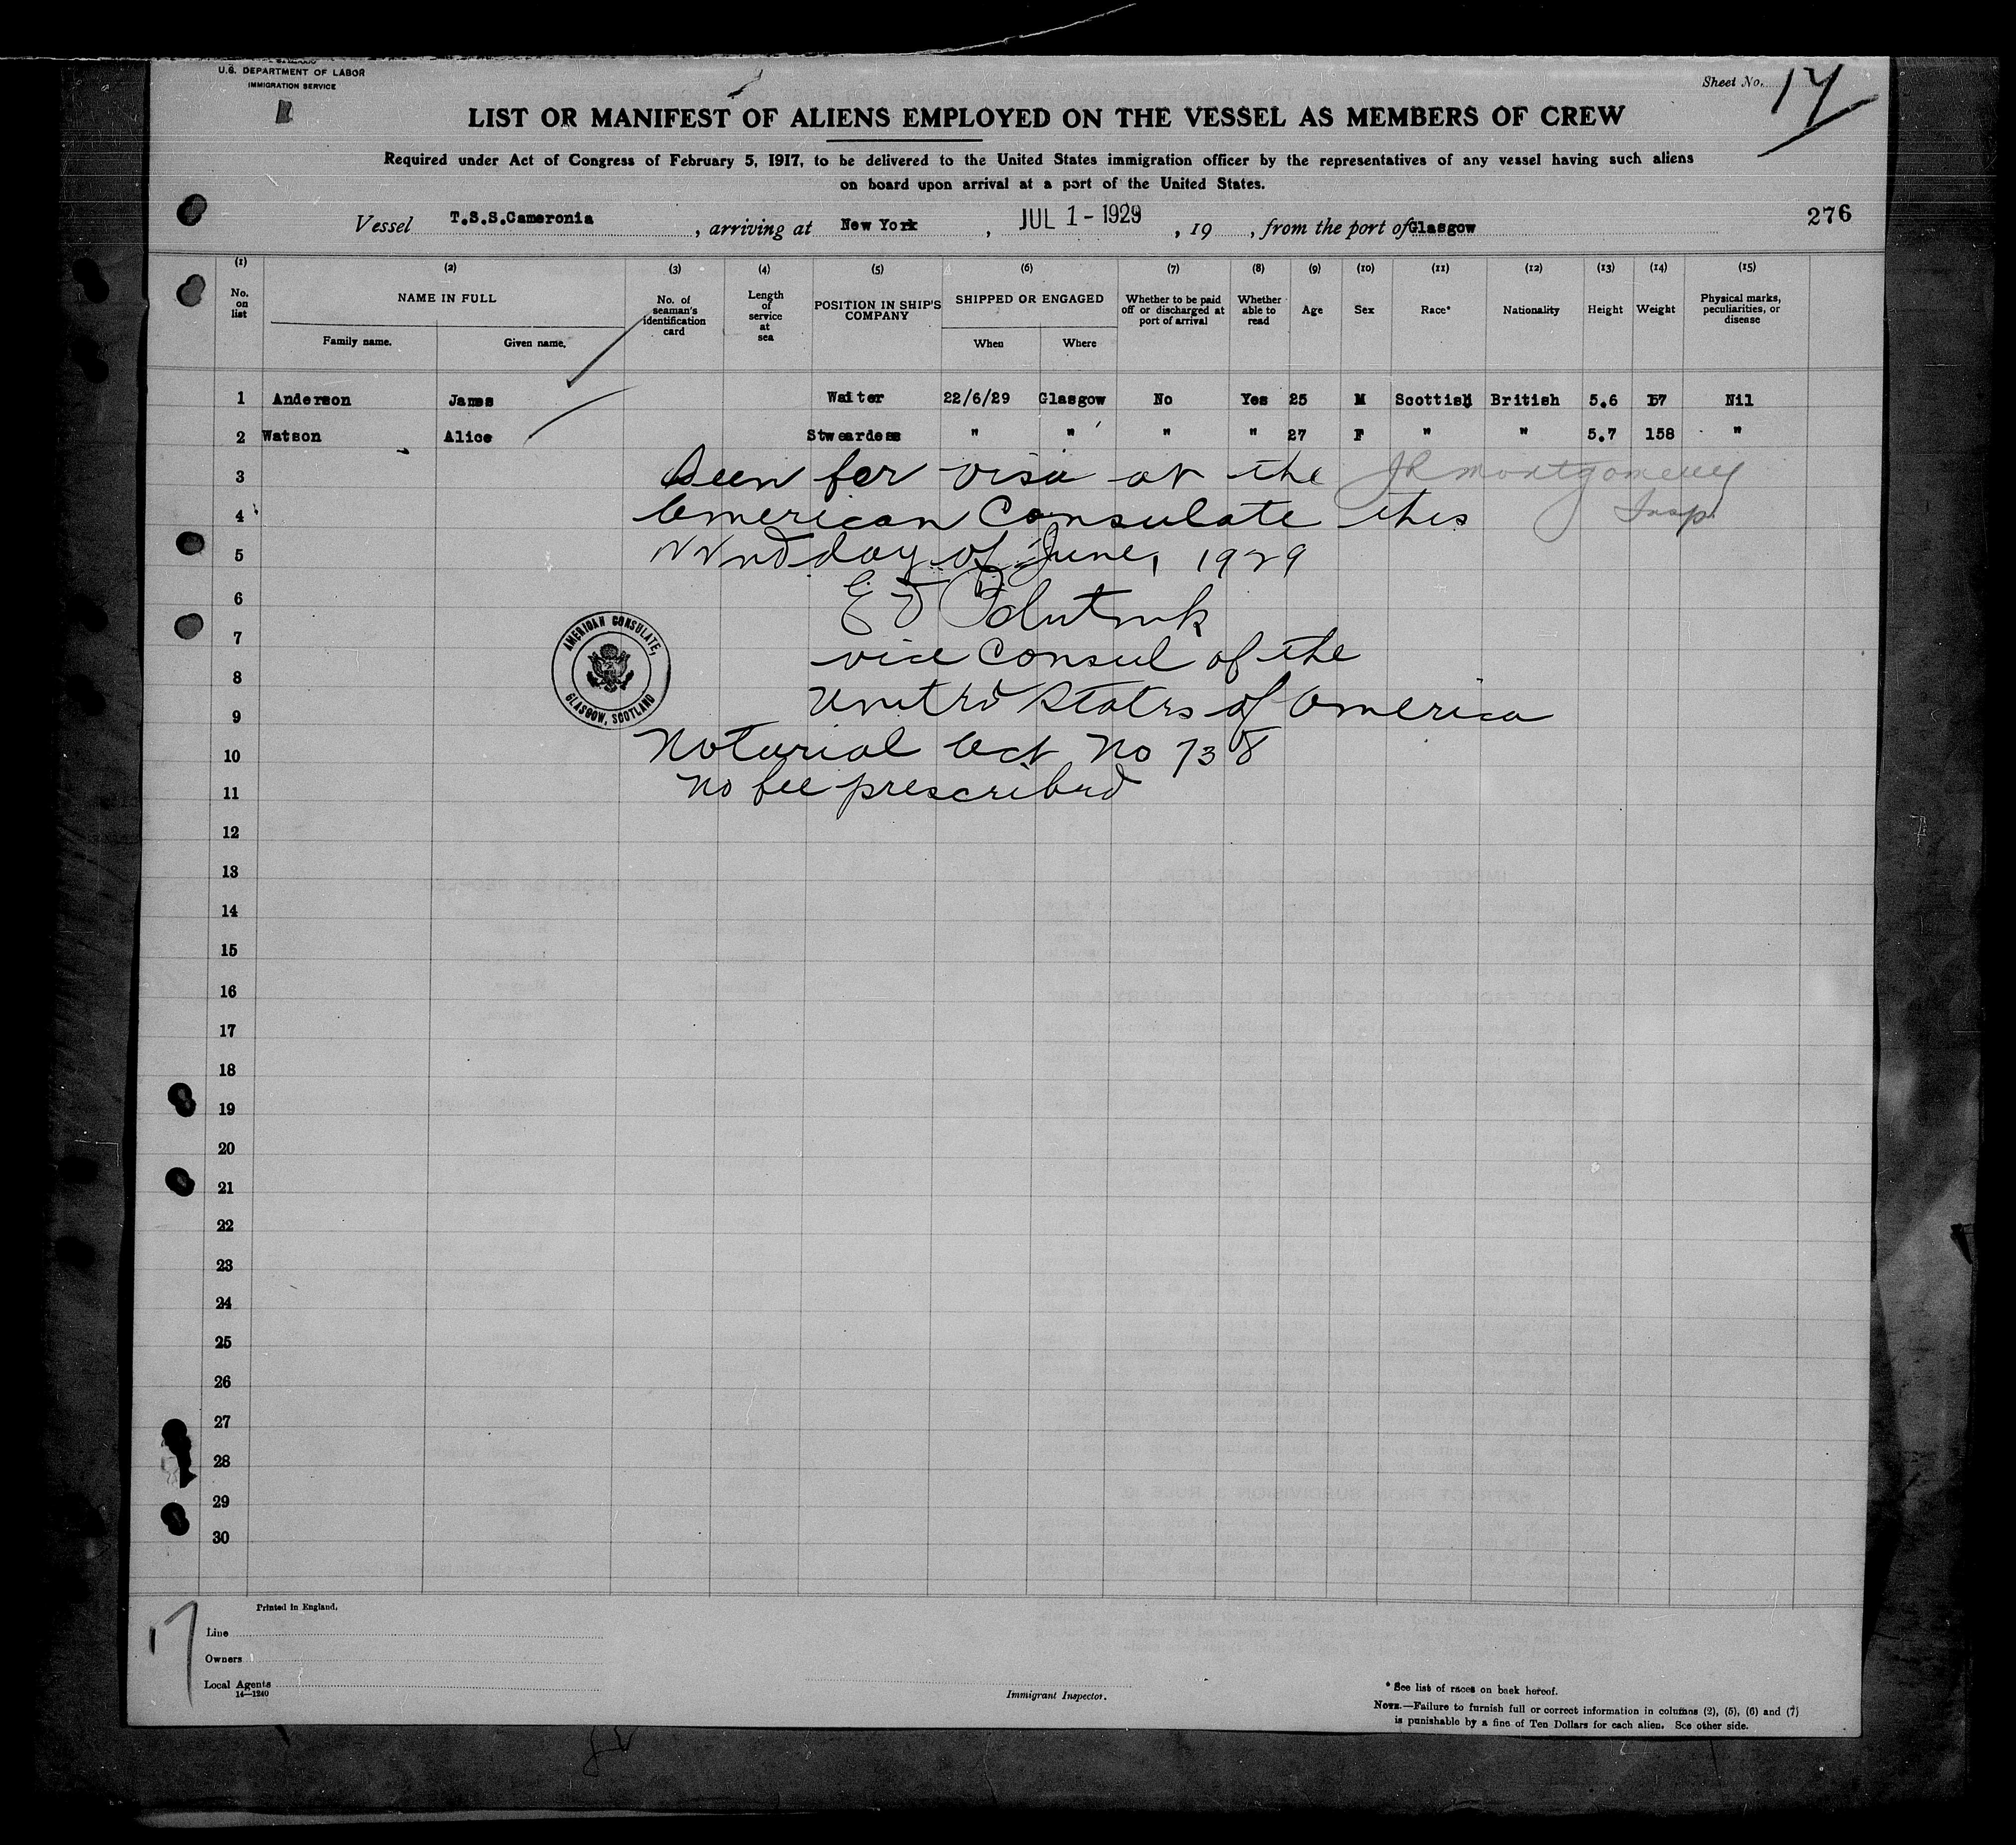 U.S. DEPARTMENT OF LABOR
IMMIGRATION SERVICE
Sheet No. 14
LIST OR MANIFEST OF ALIENS EMPLOYED ON THE VESSEL AS MEMBERS OF CREW
Required under Act of Congress of February 5, 1917, to be delivered to the United States immigration officer by the representatives of any vessel having such aliens
on board upon arrival at a port of the United States.
Vessel T.S.S.Cameronia, arriving at New York, JUL 1-1929, 19, from the port of Glasgow
276
(1) (2) (3) (4) (5) (6) (7) (8) (9) (10) (11) (12) (13) (14) (15)
No. on list
NAME IN FULL
Family name. Given name.
No. of seaman's identification card
Length of service at sea
POSITION IN SHIP'S COMPANY
SHIPPED OR ENGAGED
When Where
Whether to be paid off or discharged at port of arrival
Whether able to read
Age
Sex
Race*
Nationality
Height
Weight
Physical marks, peculiarities, or disease
1 Anderson James Waiter 22/6/29 Glasgow No Yes 25 M Scottish British 5.6 Nil
2 Watson Alice Stweardess " " " " 27 F " " 5.7 158 "
3 Seen for visa at the JR Montgomery
4 American Consulate this Insp.
5 22nd day of June, 1929
6 E
7 vice consul of the
AMERICAN CONSULATE,
GLASGOW, SCOTLAND
8 United States of America
9
10 Notarial Act No 738
11 no fee prescribed
12
13
14
15
16
17
18
19
20
21
22
23
24
25
26
27
28
29
30
Printed in England.
17
Line
Owners
Local Agents
14—1240
Immigrant Inspector.
* See list of races on back hereof.
NOTE.—Failure to furnish full or correct information in columns (2), (5), (6) and (7)
is punishable by a fine of Ten Dollars for each alien. See other side.